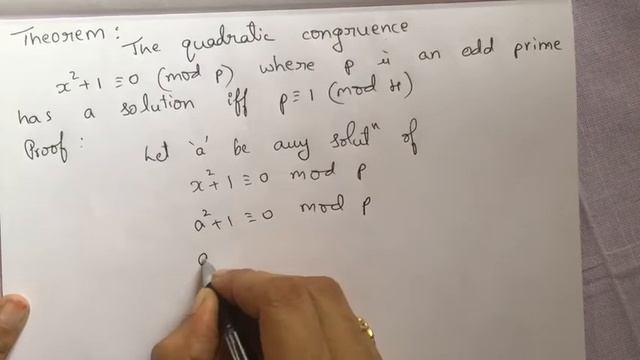 Theorem: The quadratic congruence
x²+1 ≡ 0 (mod p) where p is an odd prime
has a solution iff p ≡ 1 (mod 4)
Proof: Let 'a' be any solutⁿ of
x²+1 ≡ 0 mod p
a²+1 ≡ 0 mod p
a